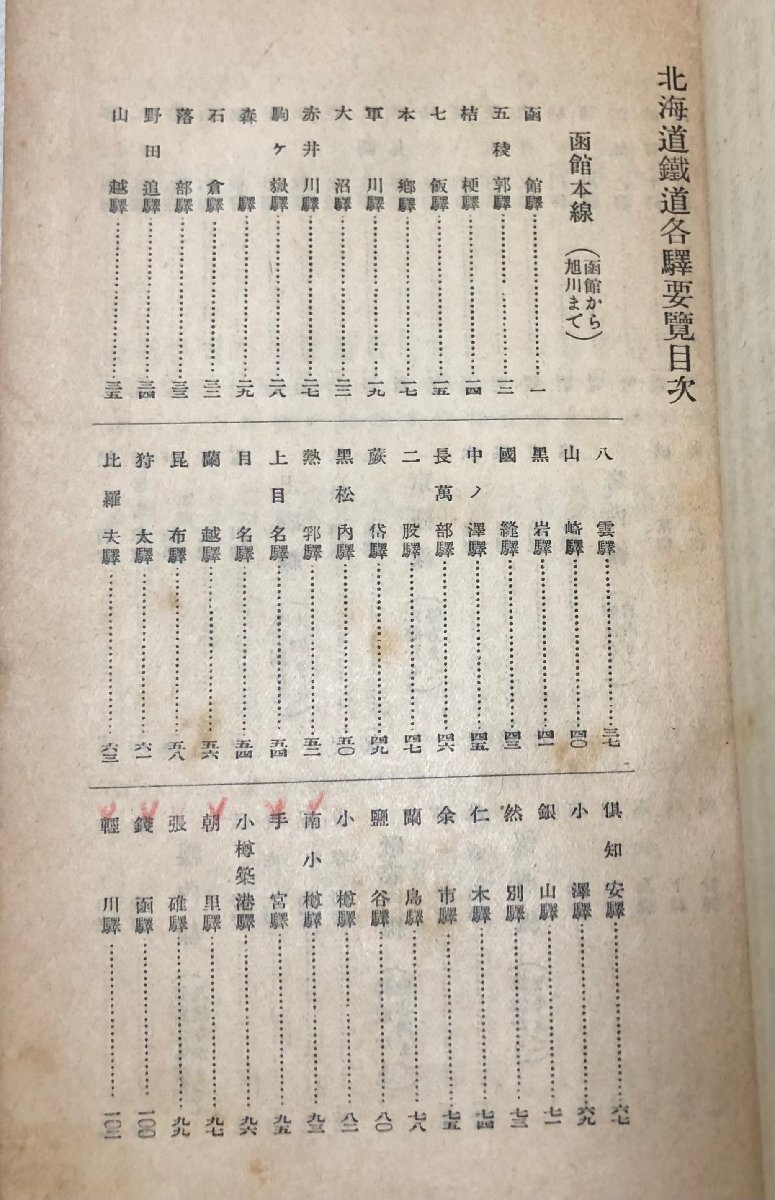 北海道鐵道各驛要覽目次
函館本線（函館から旭川まで）
函館驛……一
五稜郭驛……三
桔梗驛……一四
七飯驛……一五
本鄕驛……一七
軍川驛……一九
大沼驛……二三
赤井川驛……二七
駒ケ嶽驛……二八
森驛……二九
石倉驛……三二
落部驛……三三
野田追驛……三四
山越驛……三五
八雲驛……三七
山崎驛……四〇
黑岩驛……四一
國縫驛……四三
中ノ澤驛……四五
長萬部驛……四六
二股驛……四七
蕨岱驛……四九
黑松內驛……五〇
熱郛驛……五二
上目名驛……五四
目名驛……五四
蘭越驛……五六
昆布驛……五八
狩太驛……六一
比羅夫驛……六三
俱知安驛……六七
小澤驛……六九
銀山驛……七一
然別驛……七三
仁木驛……七四
余市驛……七五
蘭島驛……七八
鹽谷驛……八〇
小樽驛……八二
南小樽驛……九三
手宮驛……九五
小樽築港驛……九六
朝里驛……九七
張碓驛……九九
錢函驛……一〇〇
輕川驛……一〇二